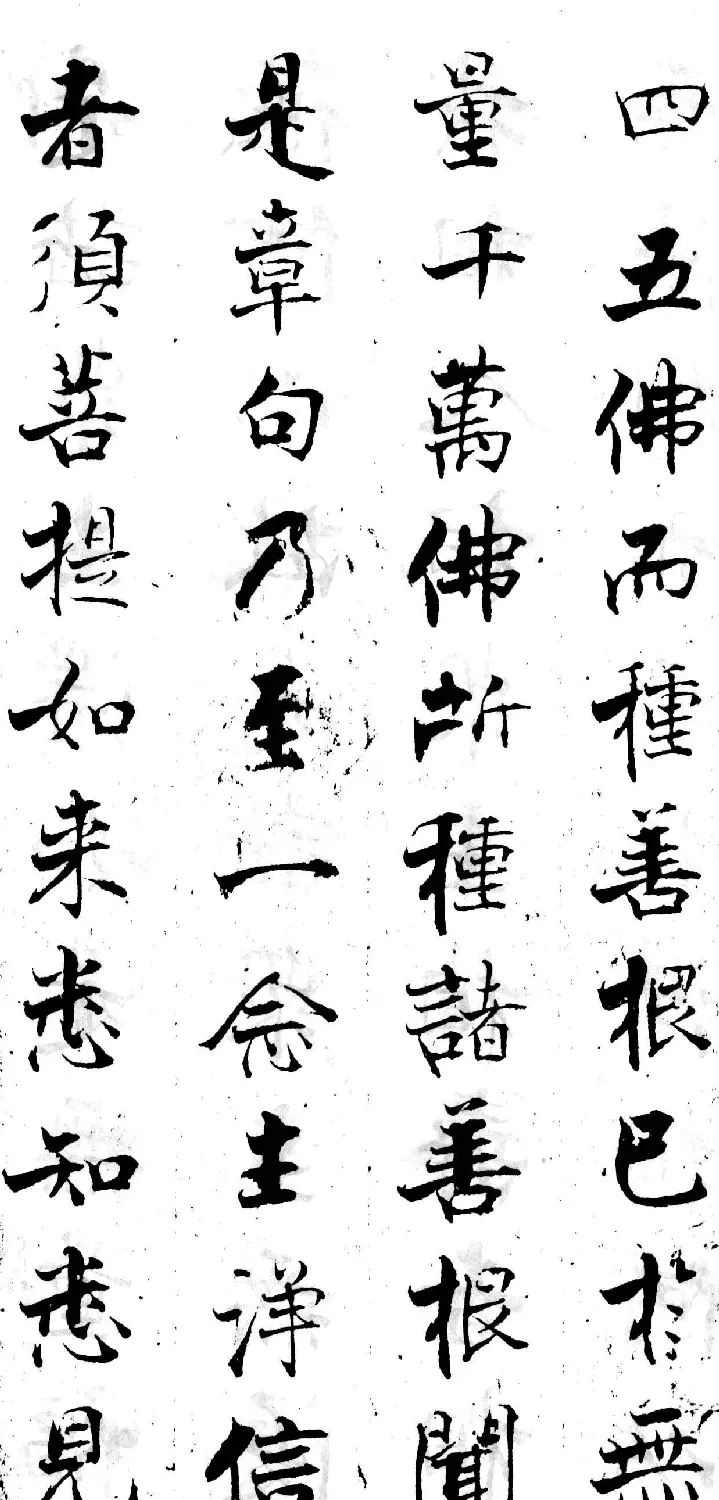 四五佛而種善根已於無
量千萬佛所種諸善根聞
是章句乃至一念生淨信
者須菩提如来悉知悉見